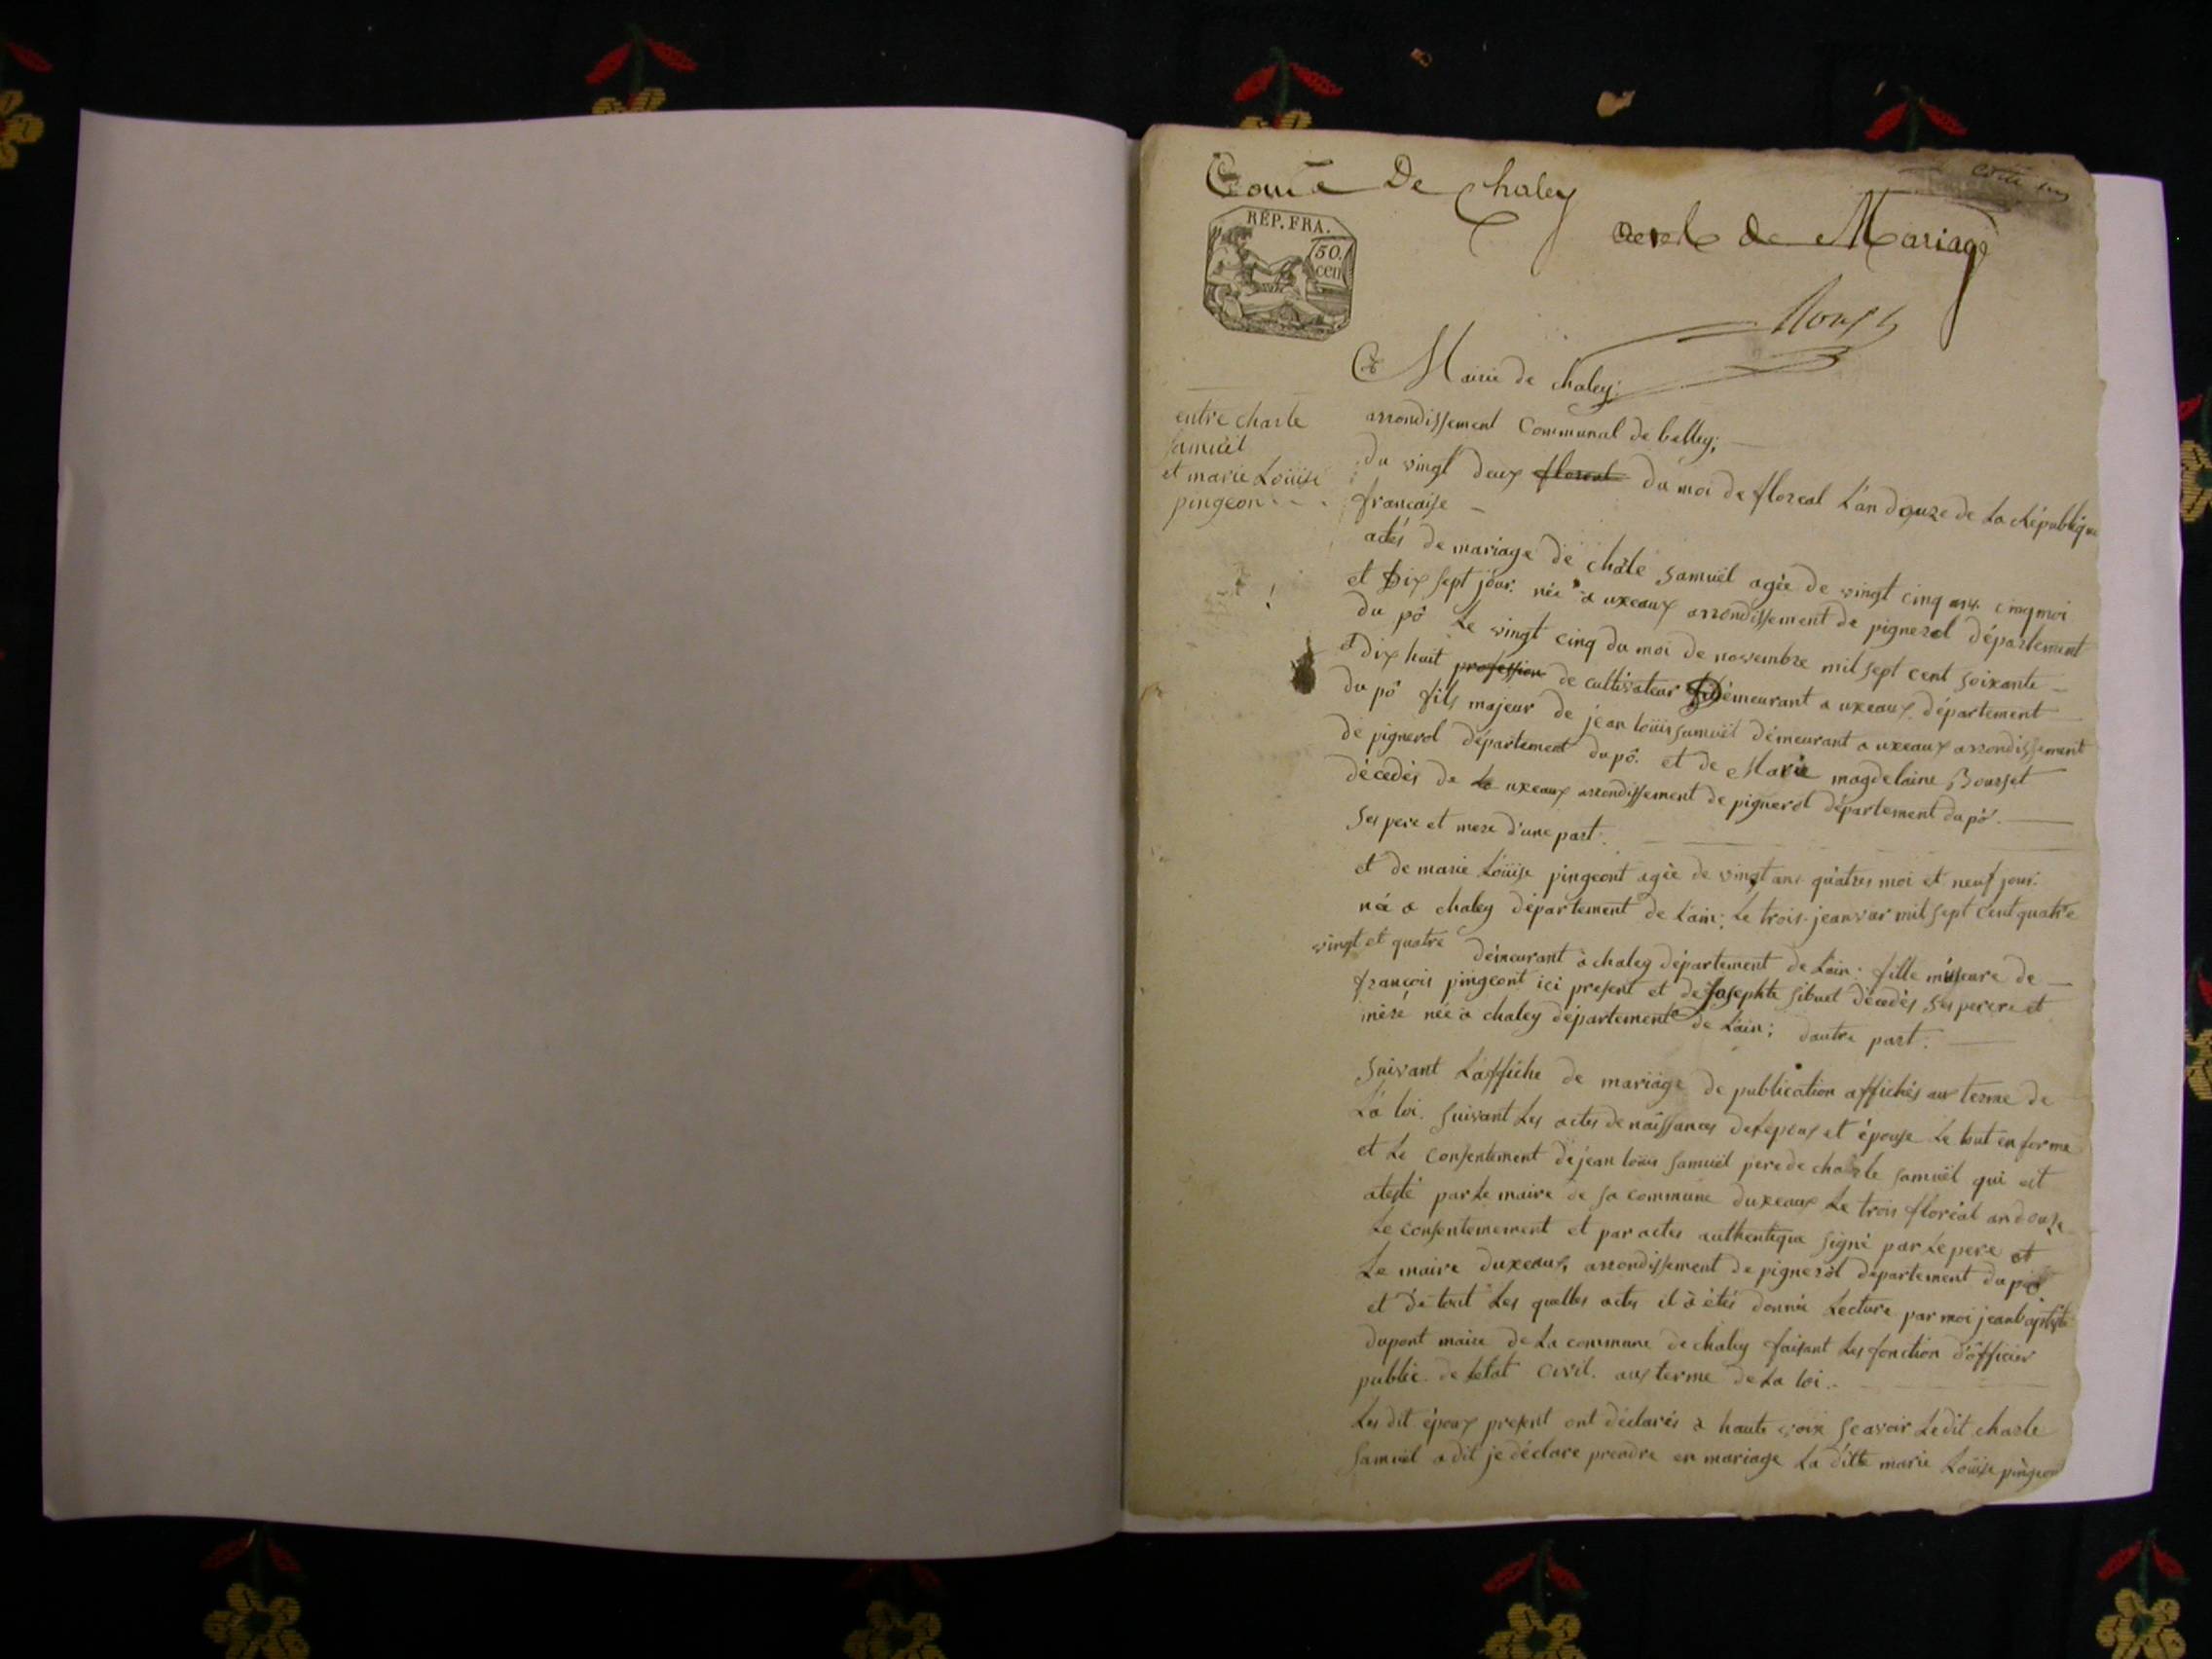 De Chaley
cotte un
acte de Mariage
RÉP. FRA.
50.
cen
Mairie de chaley:
entre charle
samuël
et marie Loüise
pingeon
arrondissement Communal de belley;
du vingt deux floreal du moi de floreal L'an douze de La République
francaise
actés de mariage de chale samuël agée de vingt cinq ans. cinq moi
et Dix sept jour. née a uxeaux arrondissement de pignerol département
du pô Le vingt cinq du moi de novembre mil sept cent soixante
et dix huit profession de cultivateur Démeurant a uxeaux. département
du pô fils majeur de jean loüis samuël démeurant a uxeaux arrondissement
de pignerol département du pô. et de Marie magdelaine Bousset
décedés de uxeaux arrondissement de pignerol département du pô.
ses pere et mere d'une part.
et de marie Loüise pingeont agée de vingt ans quatres moi et neuf jour.
née a chaley département de Lain; Le trois. jeanvar mil sept cent quatre
vingt et quatre démeurant à chaley département de Lain: fille mineure de
françois pingeont ici present et de Josephte sibuet décedés ses perere et
mère née à chaley département de Lain; dautre part.
suivant Laffiche de mariage de publication affichés aux terme de
La loi. suivant Les actes de naissances de Lepoux et épouse Le tout en forme
et Le consentement de jean loüis samuël pere de charle samuël qui est
atesté par Le maire de sa commune duxeaux Le trois floréal an douze
Le consentemement et par actes authentique signé par Le pere et
Le maire duxeaux arrondissement de pignerol département du pô
et de tout Les quelles actes il à étés donnée Lecture par moi jean baptiste
dupont maire de La commune de chaley faisant Les fonction d'officier
public de Letat civil. aux terme de La loi.
Les dit époux present ont déclarés a haute voix scavoir Ledit charle
samuël a dit je déclare prendre en mariage La ditte marie Loüise pingeon